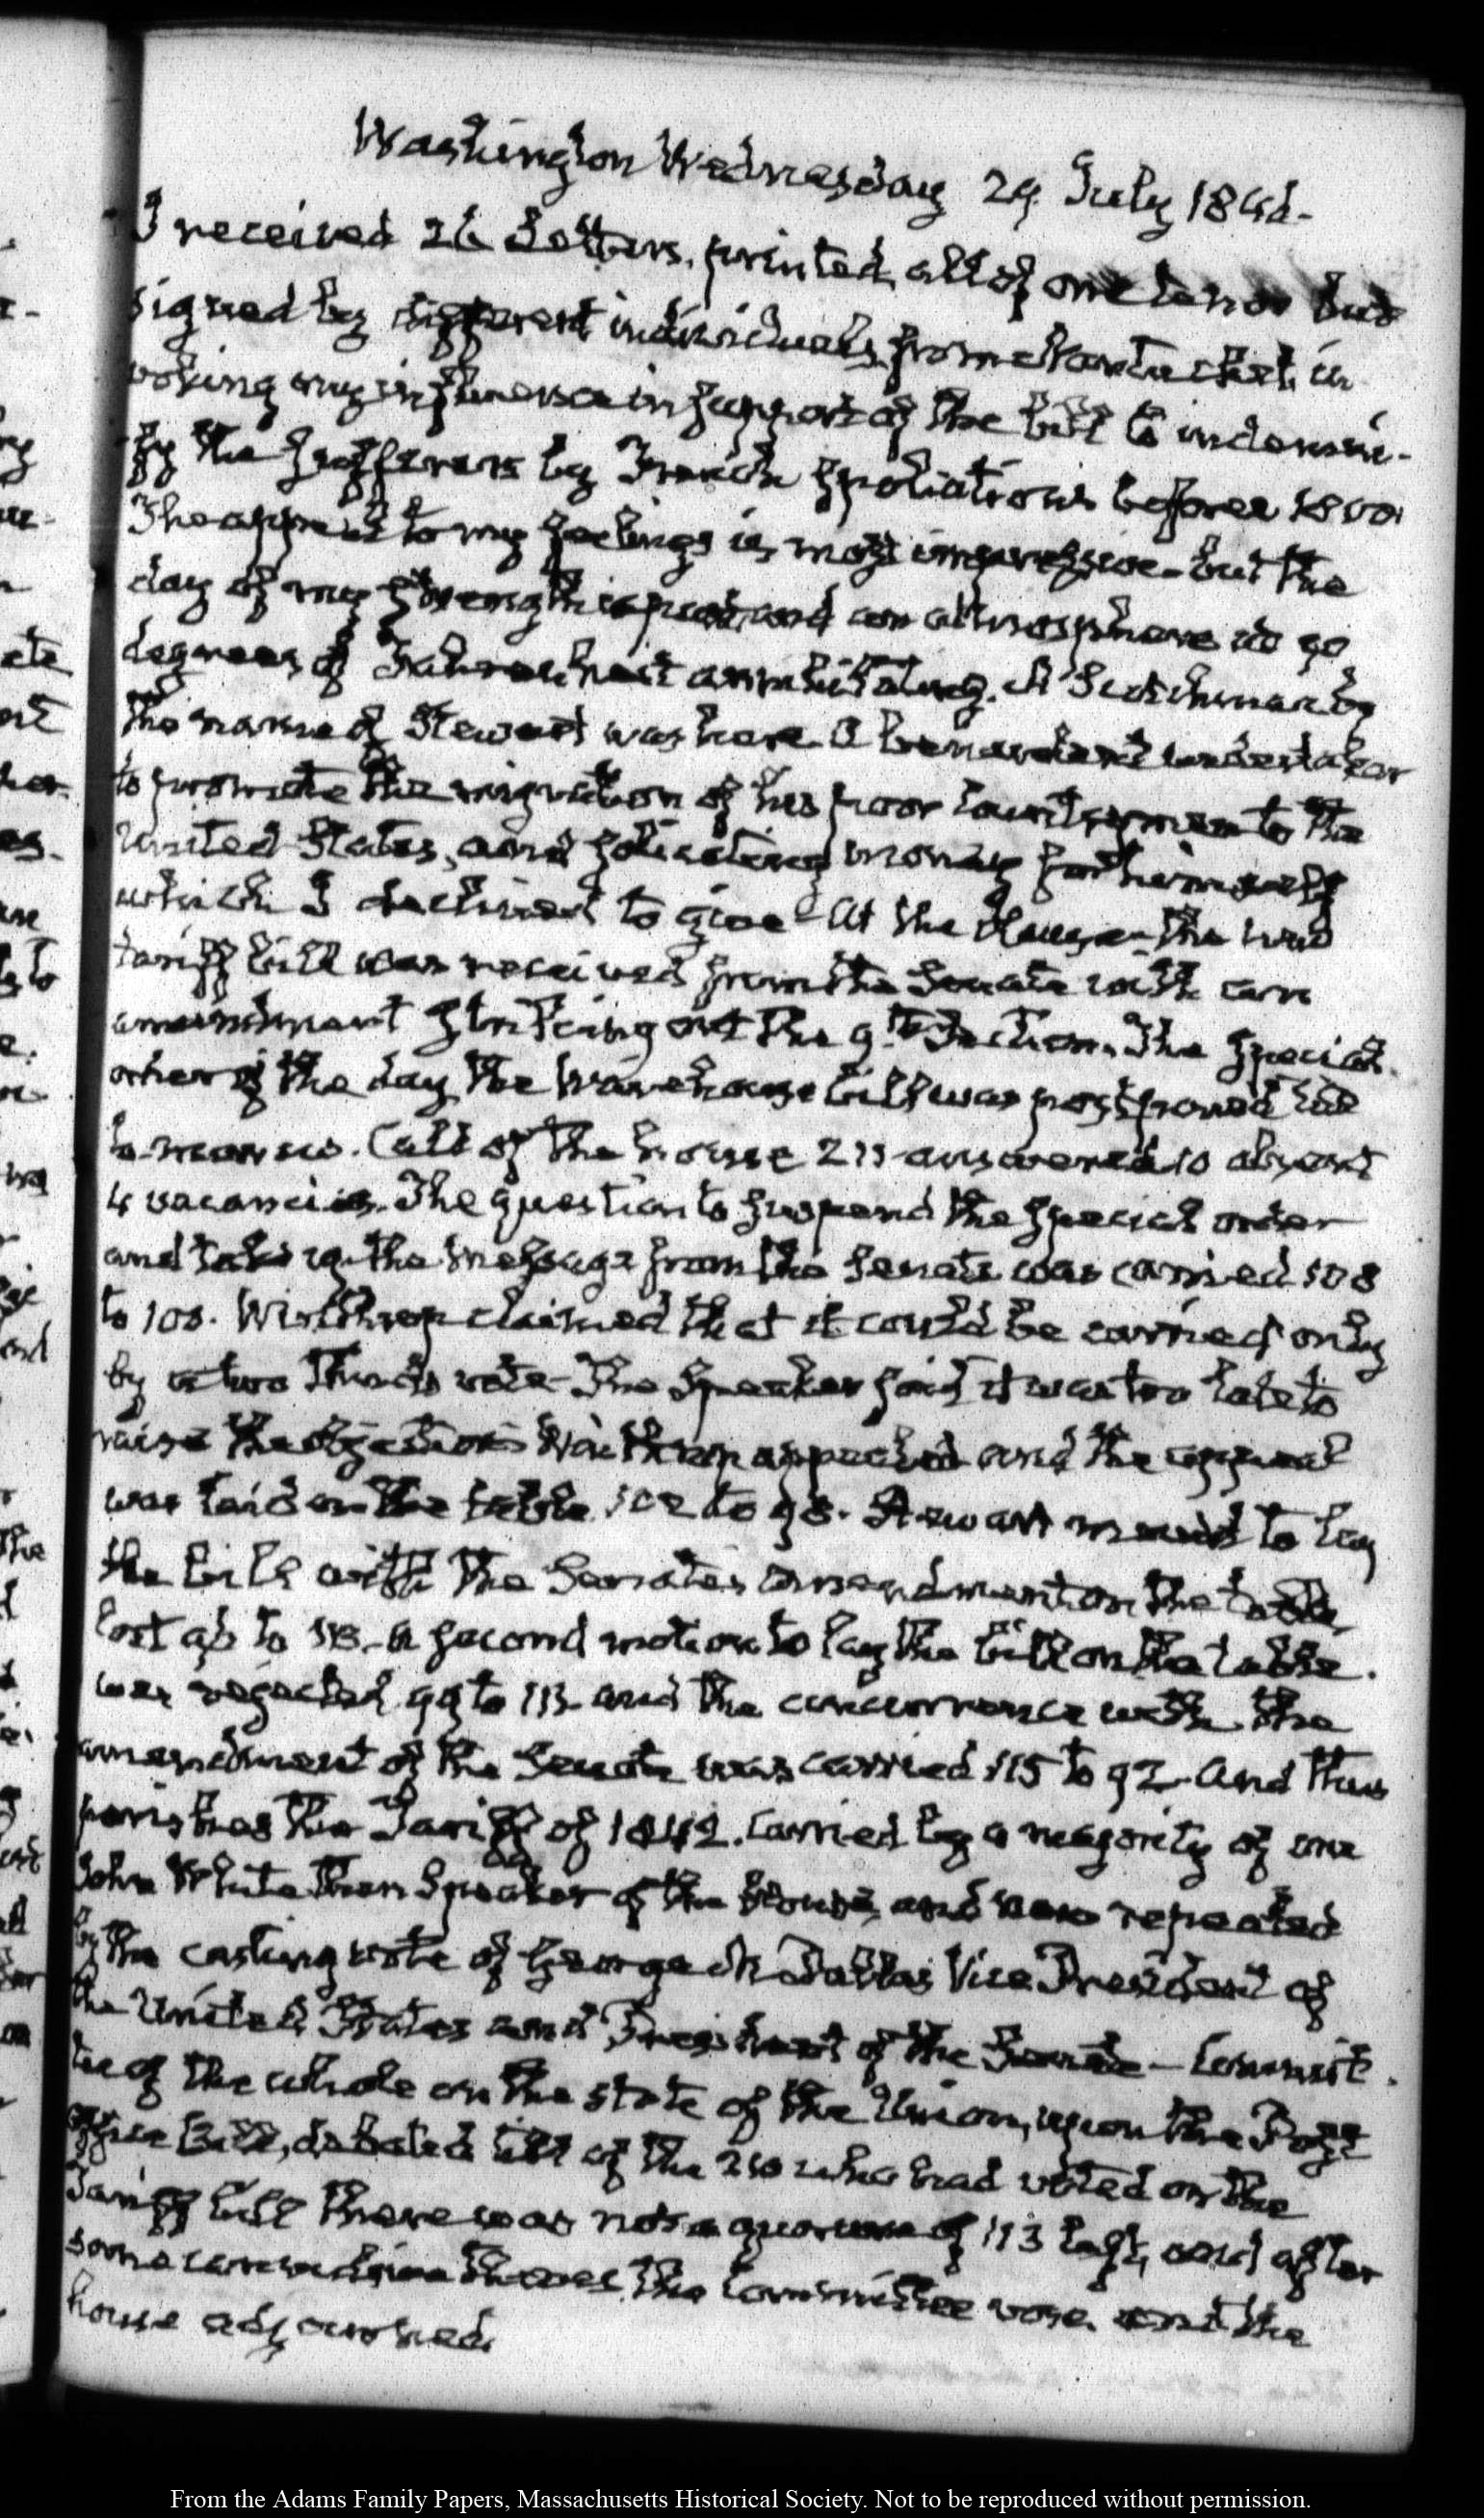 Washington Wednesday 29. July 1846.
I received 26 Letters, printed, all of one tenor but
signed by different individuals, from Nantucket, in-
voking my influence in support of the bill to indemni-
fy the sufferers by French spoliations before 1800.
The appeal to my feelings is most impressive - but the
day of my strength is past, and an atmosphere at 90
degrees of Fahrenheit annihilating. A Scotchman by
the name of Stewart was here a benevolent undertaker
to promote the migration of his poor Countrymen to the
United States, and soliciting money for himself
which I declined to give - At the House - the
tariff bill was received from the Senate with an
amendment striking out the 9th. Section. The special
order of the day, the Warehouse bill was postponed till
to-morrow. Call of the house 213 answered 10 absent
4 vacancies. The question to suspend the special order
and take up the message from the Senate was carried 108
to 100. Winthrop claimed that it could be carried only
by a two thirds vote - The Speaker said it was too late to
raise the objection Winthrop appealed and the appeal
was laid on the table 102 to 98. Stewart moved to lay
the bill with the Senate's amendment on the table,
lost 96 to 110 - a second motion to lay the bill on the table.
was rejected 99 to 113 and the concurrence with the
amendment of the Senate was carried 115 to 92. And thus
perishes the Tariff of 1842. Carried by a majority of one
John White then Speaker of the House, and now repealed
by the casting vote of George M Dallas Vice President of
the United States and President of the Senate - Commit-
tee of the whole on the state of the Union, upon the Post
Office Bill, debated till of the 210 who had voted on the
Tariff bill there was not a quorum of 113 left, and after
some the Committee rose and the
house adjourned.
From the Adams Family Papers, Massachusetts Historical Society. Not to be reproduced without permission.